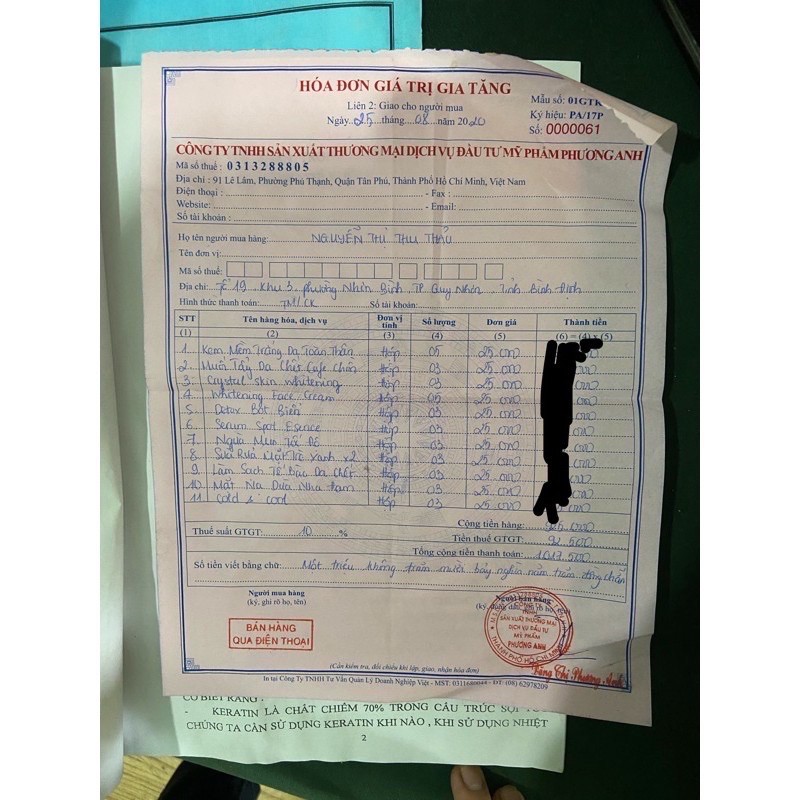 HÓA ĐƠN GIÁ TRỊ GIA TĂNG
Liên 2: Giao cho người mua
Ngày 25 tháng 08 năm 2020
Mẫu số: 01GTK
Ký hiệu: PA/17P
Số: 0000061
CÔNG TY TNHH SẢN XUẤT THƯƠNG MẠI DỊCH VỤ ĐẦU TƯ MỸ PHẨM PHƯƠNG ANH
Mã số thuế : 0313288805
Địa chỉ : 91 Lê Lâm, Phường Phú Thạnh, Quận Tân Phú, Thành Phố Hồ Chí Minh, Việt Nam
Điện thoại : - Fax :
Website: - Email:
Số tài khoản :
Họ tên người mua hàng: NGUYỄN THỊ THU THẢO
Tên đơn vị:
Mã số thuế:
Địa chỉ: Tổ 19, Khu 3, phường Nhơn Bình, TP Quy Nhơn, Tỉnh Bình Định
Hình thức thanh toán: TM/CK Số tài khoản:
STT Tên hàng hóa, dịch vụ Đơn vị tính Số lượng Đơn giá Thành tiền
(1) (2) (3) (4) (5) (6) = (4) x (5)
1 Kem Mềm Trắng Da Toàn Thân Hộp 05 25.000
2 Muối Tẩy Da Chết Cafe Hộp 03 25.000
3 Crystal skin whitening Hộp 03 25.000
4 Whitening Face Cream Hộp 05 25.000
5 Detox Bọt Biển Hộp 03 25.000
6 Serum Spot Esence Hộp 03 25.000
7 Ngừa Mụn Hộp 03 25.000
8 Sữa Rửa Mặt Trà Xanh x2 Hộp 03 25.000
9 Làm Sạch Tế Bào Da Chết Hộp 03 25.000
10 Mặt Nạ Dưa Nha Đam Hộp 03 25.000
11 Cold & Cool Hộp 03 25.000
Cộng tiền hàng: 925.000
Thuế suất GTGT: 10 % Tiền thuế GTGT: 92.500
Tổng cộng tiền thanh toán: 1.017.500
Số tiền viết bằng chữ: Một triệu không trăm mười bảy nghìn năm trăm đồng chẵn
Người mua hàng
(ký, ghi rõ họ, tên)
Người bán hàng
BÁN HÀNG
QUA ĐIỆN THOẠI
SẢN XUẤT THƯƠNG MẠI
DỊCH VỤ ĐẦU TƯ
MỸ PHẨM
PHƯƠNG ANH
THÀNH PHỐ HỒ CHÍ MINH
Tăng Chi Phương Anh
(Cần kiểm tra, đối chiếu khi lập, giao, nhận hóa đơn)
In tại Công Ty TNH1 Tư Vấn Quản Lý Doanh Nghiệp Việt - MST: 0311680044 - ĐT: (08) 62978209
CÓ BIẾT RẰNG :
- KERATIN LÀ CHẤT CHIẾM 70% TRONG CẤU TRÚC SỢI
CHÚNG TA CẦN SỬ DỤNG KERATIN KHI NÀO , KHI SỬ DỤNG NHIỆT
2